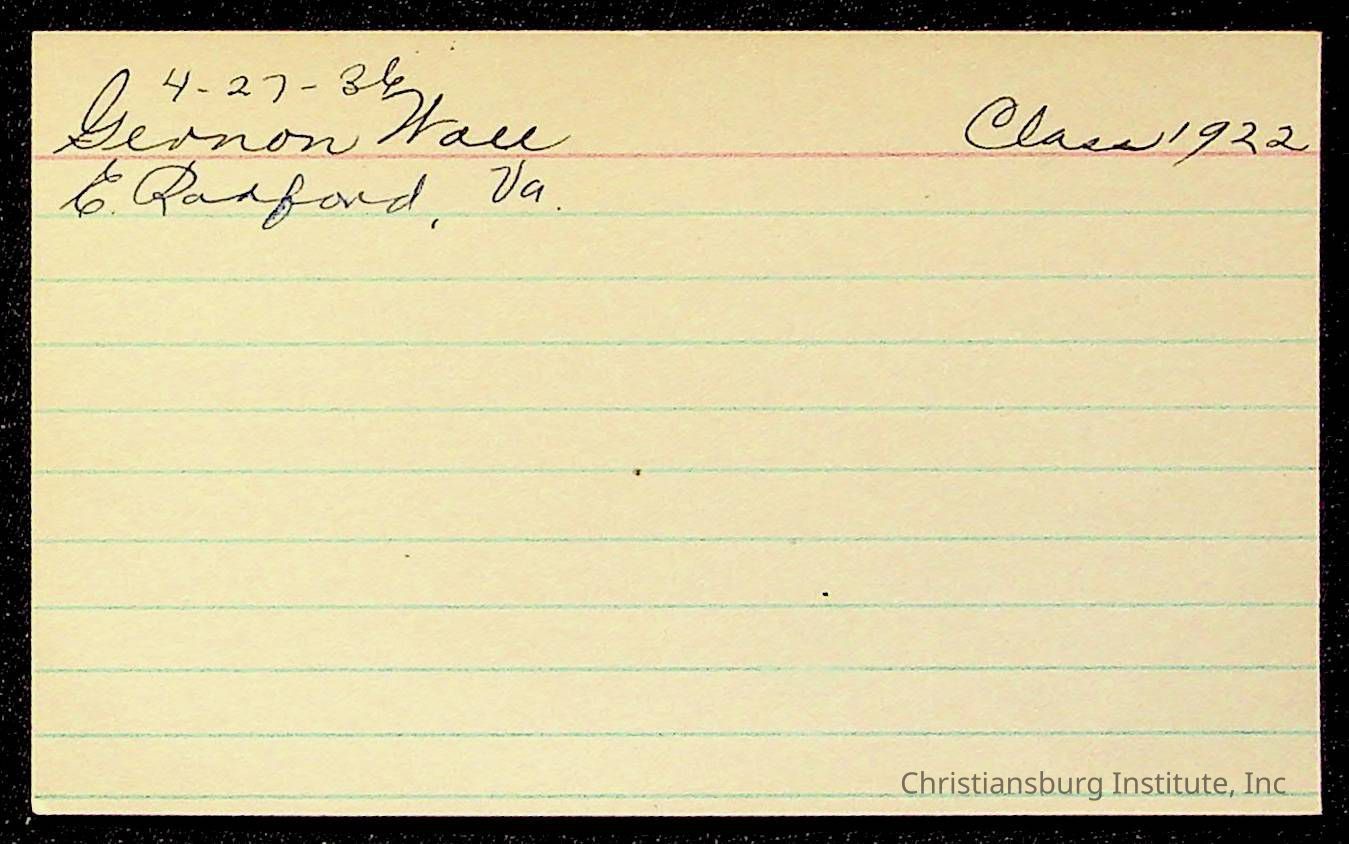 4-27-36
Gernon Wall
Class 1922
E. Radford, Va.
Christiansburg Institute, Inc